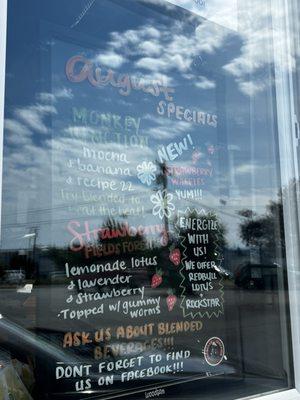 August
SPECIALS
MONKEY
JUNCTION
mocha
+ banana
+ recipe 22
Try blended to
beat the heat!
NEW!
STRAWBERRY
WAFFLES
YUM!!!
Strawberry
FIELDS FOREVER
lemonade lotus
+ lavender
+ strawberry
-Topped w/gummy
worms
ENERGIZE
WITH
US!
WE OFFER
REDBULL
LOTUS
ROCKSTAR
ASK US ABOUT BLENDED
BEVERAGES!!!
DONT FORGET TO FIND
US ON FACEBOOK!!!